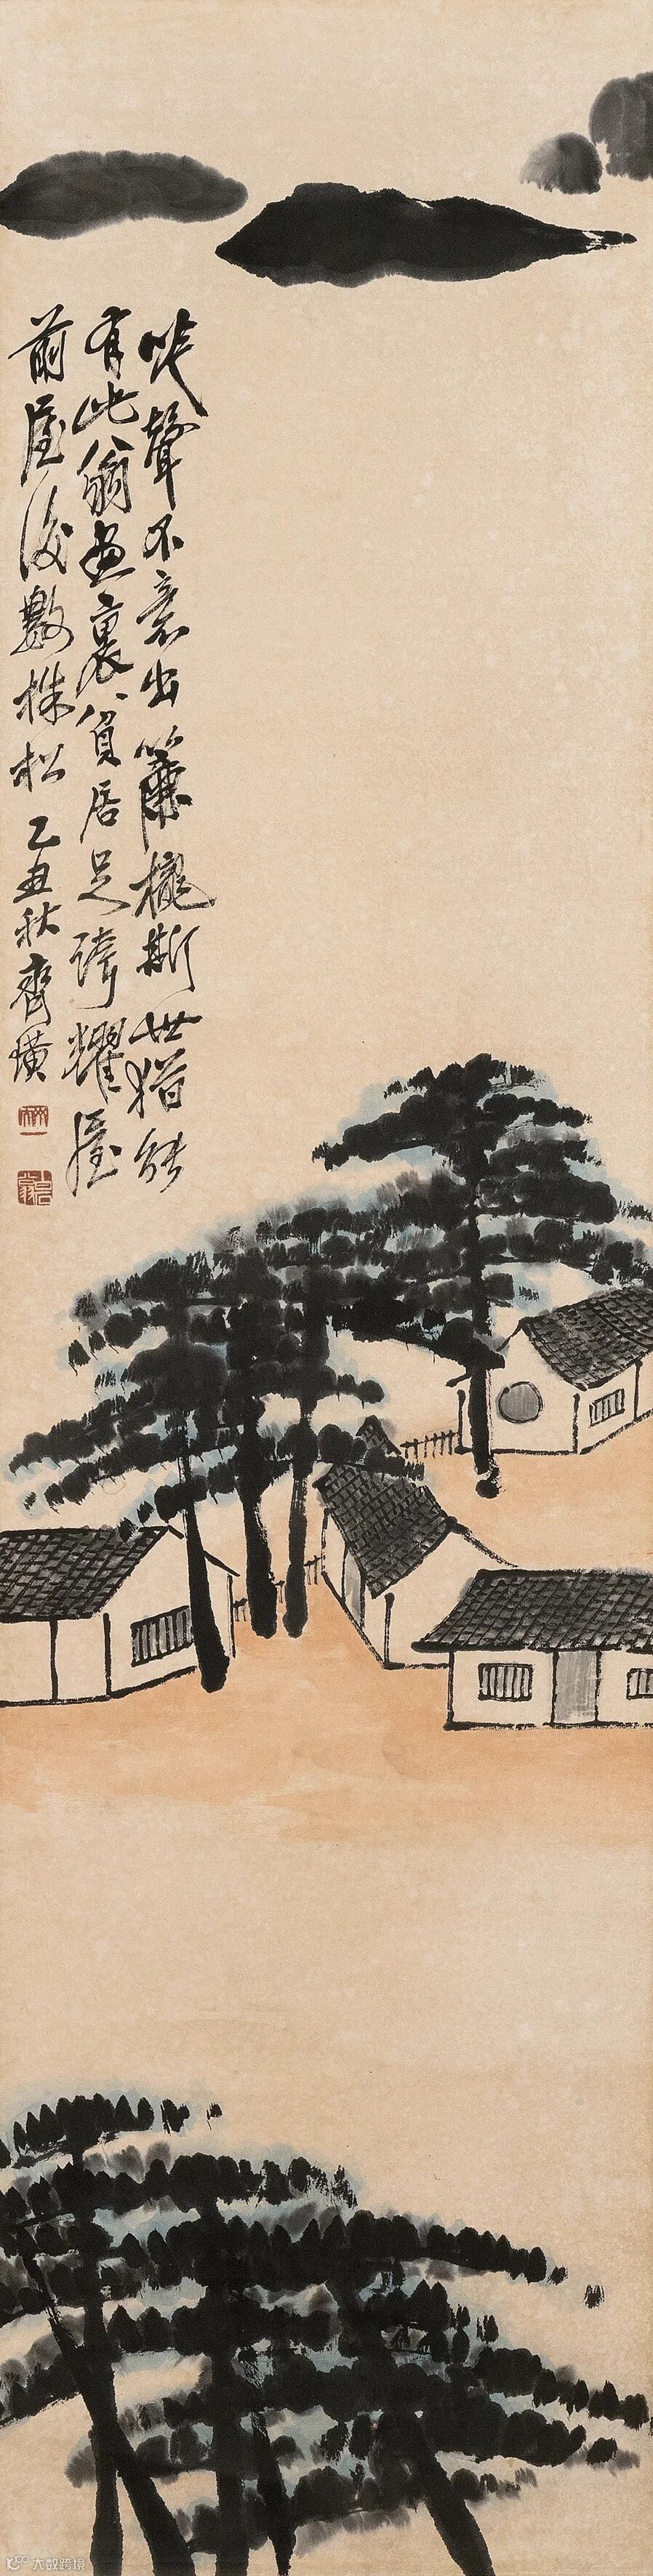 咲聲不意出簾櫳斯世猶能
有此翁畫裏貧居足誇耀屋
前屋後數株松乙丑秋齊璜
白石翁
大数跨境